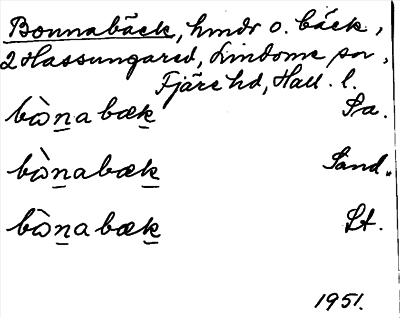 Bonnabäck, hmdr o. bäck,
2 Hassungared, Lindome sn,
Fjäre hd, Hall. l.
bὼn̲abæk̲ Sa.
bὼn̲abæk̲ Sand.
bὼn̲abæk̲ Lt.
1951.